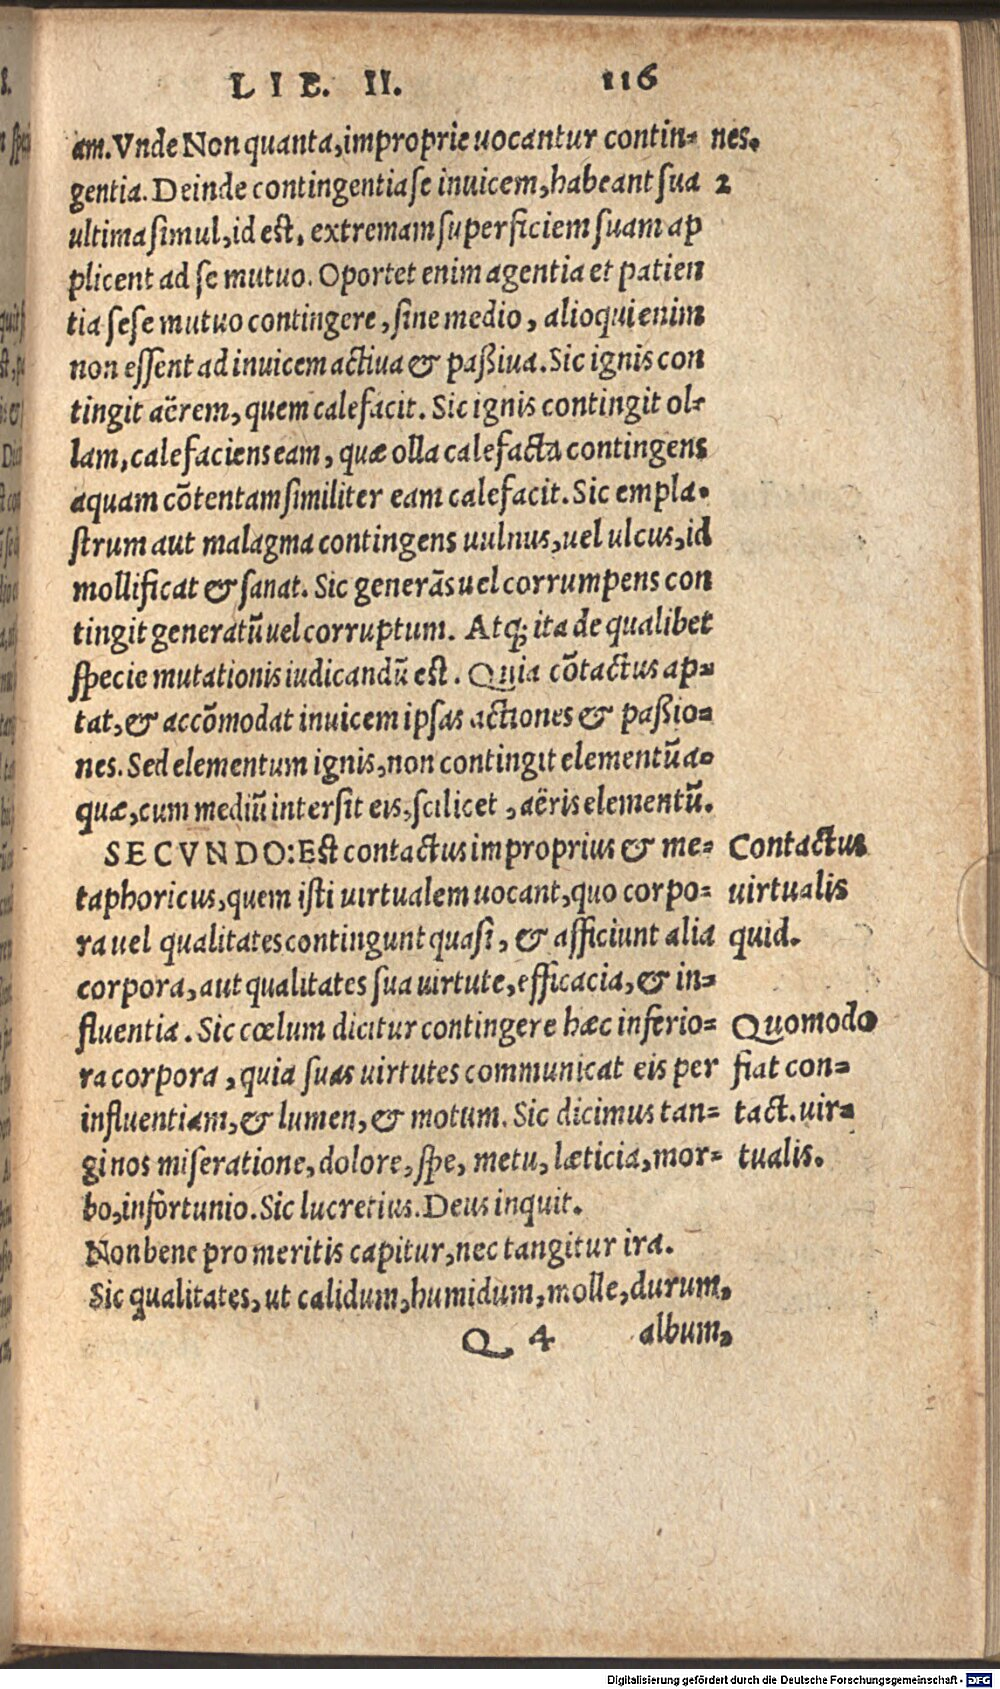 LIB. II. 116
am. Vnde Non quanta, improprie uocantur contin- nes.
gentia. Deinde contingentia se inuicem, habeant sua 2
ultima simul, id est, extremam superficiem suam ap
plicent ad se mutuo. Oportet enim agentia et patien
tia sese mutuo contingere, sine medio, alioqui enim
non essent ad inuicem actiua & paßiua. Sic ignis con
tingit aërem, quem calefacit. Sic ignis contingit ol-
lam, calefaciens eam, quæ olla calefacta contingens
aquam cōtentam similiter eam calefacit. Sic empla-
strum aut malagma contingens uulnus, uel ulcus, id
mollificat & sanat. Sic generās uel corrumpens con
tingit generatū uel corruptum. Atq; ita de qualibet
specie mutationis iudicandū est. Quia cōtactus ap-
tat, & accōmodat inuicem ipsas actiones & paßio-
nes. Sed elementum ignis, non contingit elementū a-
quæ, cum mediū intersit eis, scilicet, aëris elementū.
SECVNDO: Est contactus improprius & me- Contactus
taphoricus, quem isti uirtualem uocant, quo corpo- uirtualis
ra uel qualitates contingunt quasi, & afficiunt alia quid.
corpora, aut qualitates sua uirtute, efficacia, & in-
fluentia. Sic cœlum dicitur contingere hæc inferio- Quomodo
ra corpora, quia suas uirtutes communicat eis per fiat con-
influentiam, & lumen, & motum. Sic dicimus tan- tact. uir-
gi nos miseratione, dolore, spe, metu, læticia, mor- tualis.
bo, infortunio. Sic lucretius. Deus inquit.
Non bene pro meritis capitur, nec tangitur ira.
Sic qualitates, ut calidum, humidum, molle, durum,
Q 4 album,
Digitalisierung gefördert durch die Deutsche Forschungsgemeinschaft - DFG